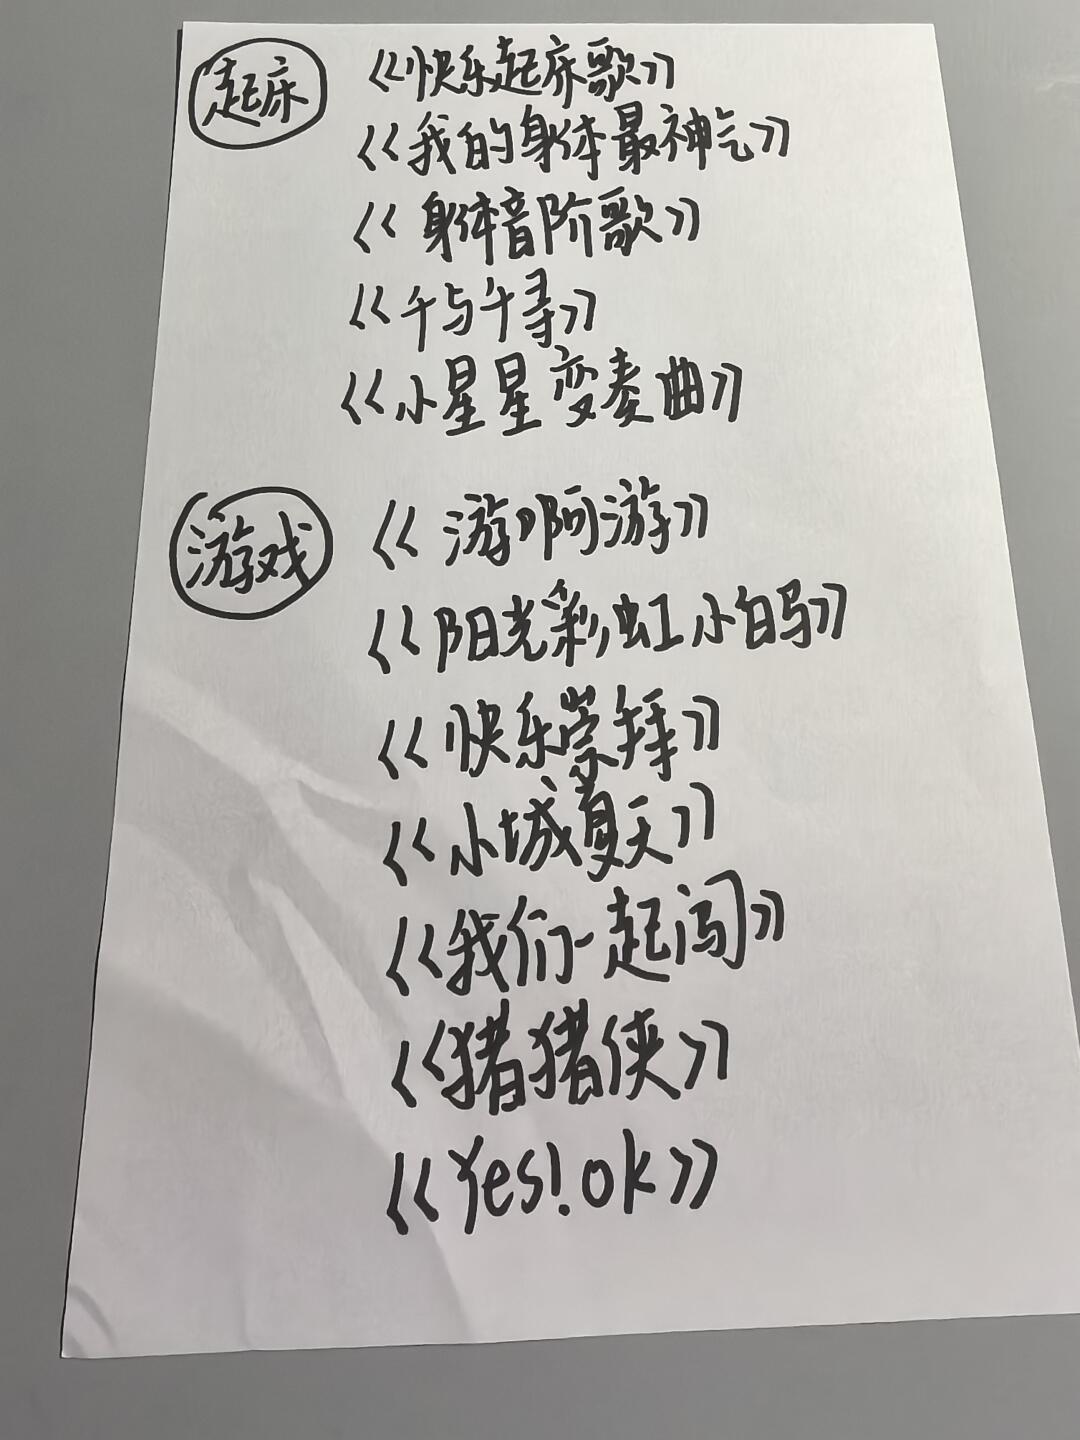 起床 《快乐起床歌》
《我的身体最神气》
《身体音阶歌》
《千与千寻》
《小星星变奏曲》
游戏 《游啊游》
《阳光彩虹小白马》
《快乐崇拜》
《小城夏天》
《我们一起闯》
《猪猪侠》
《Yes!ok》